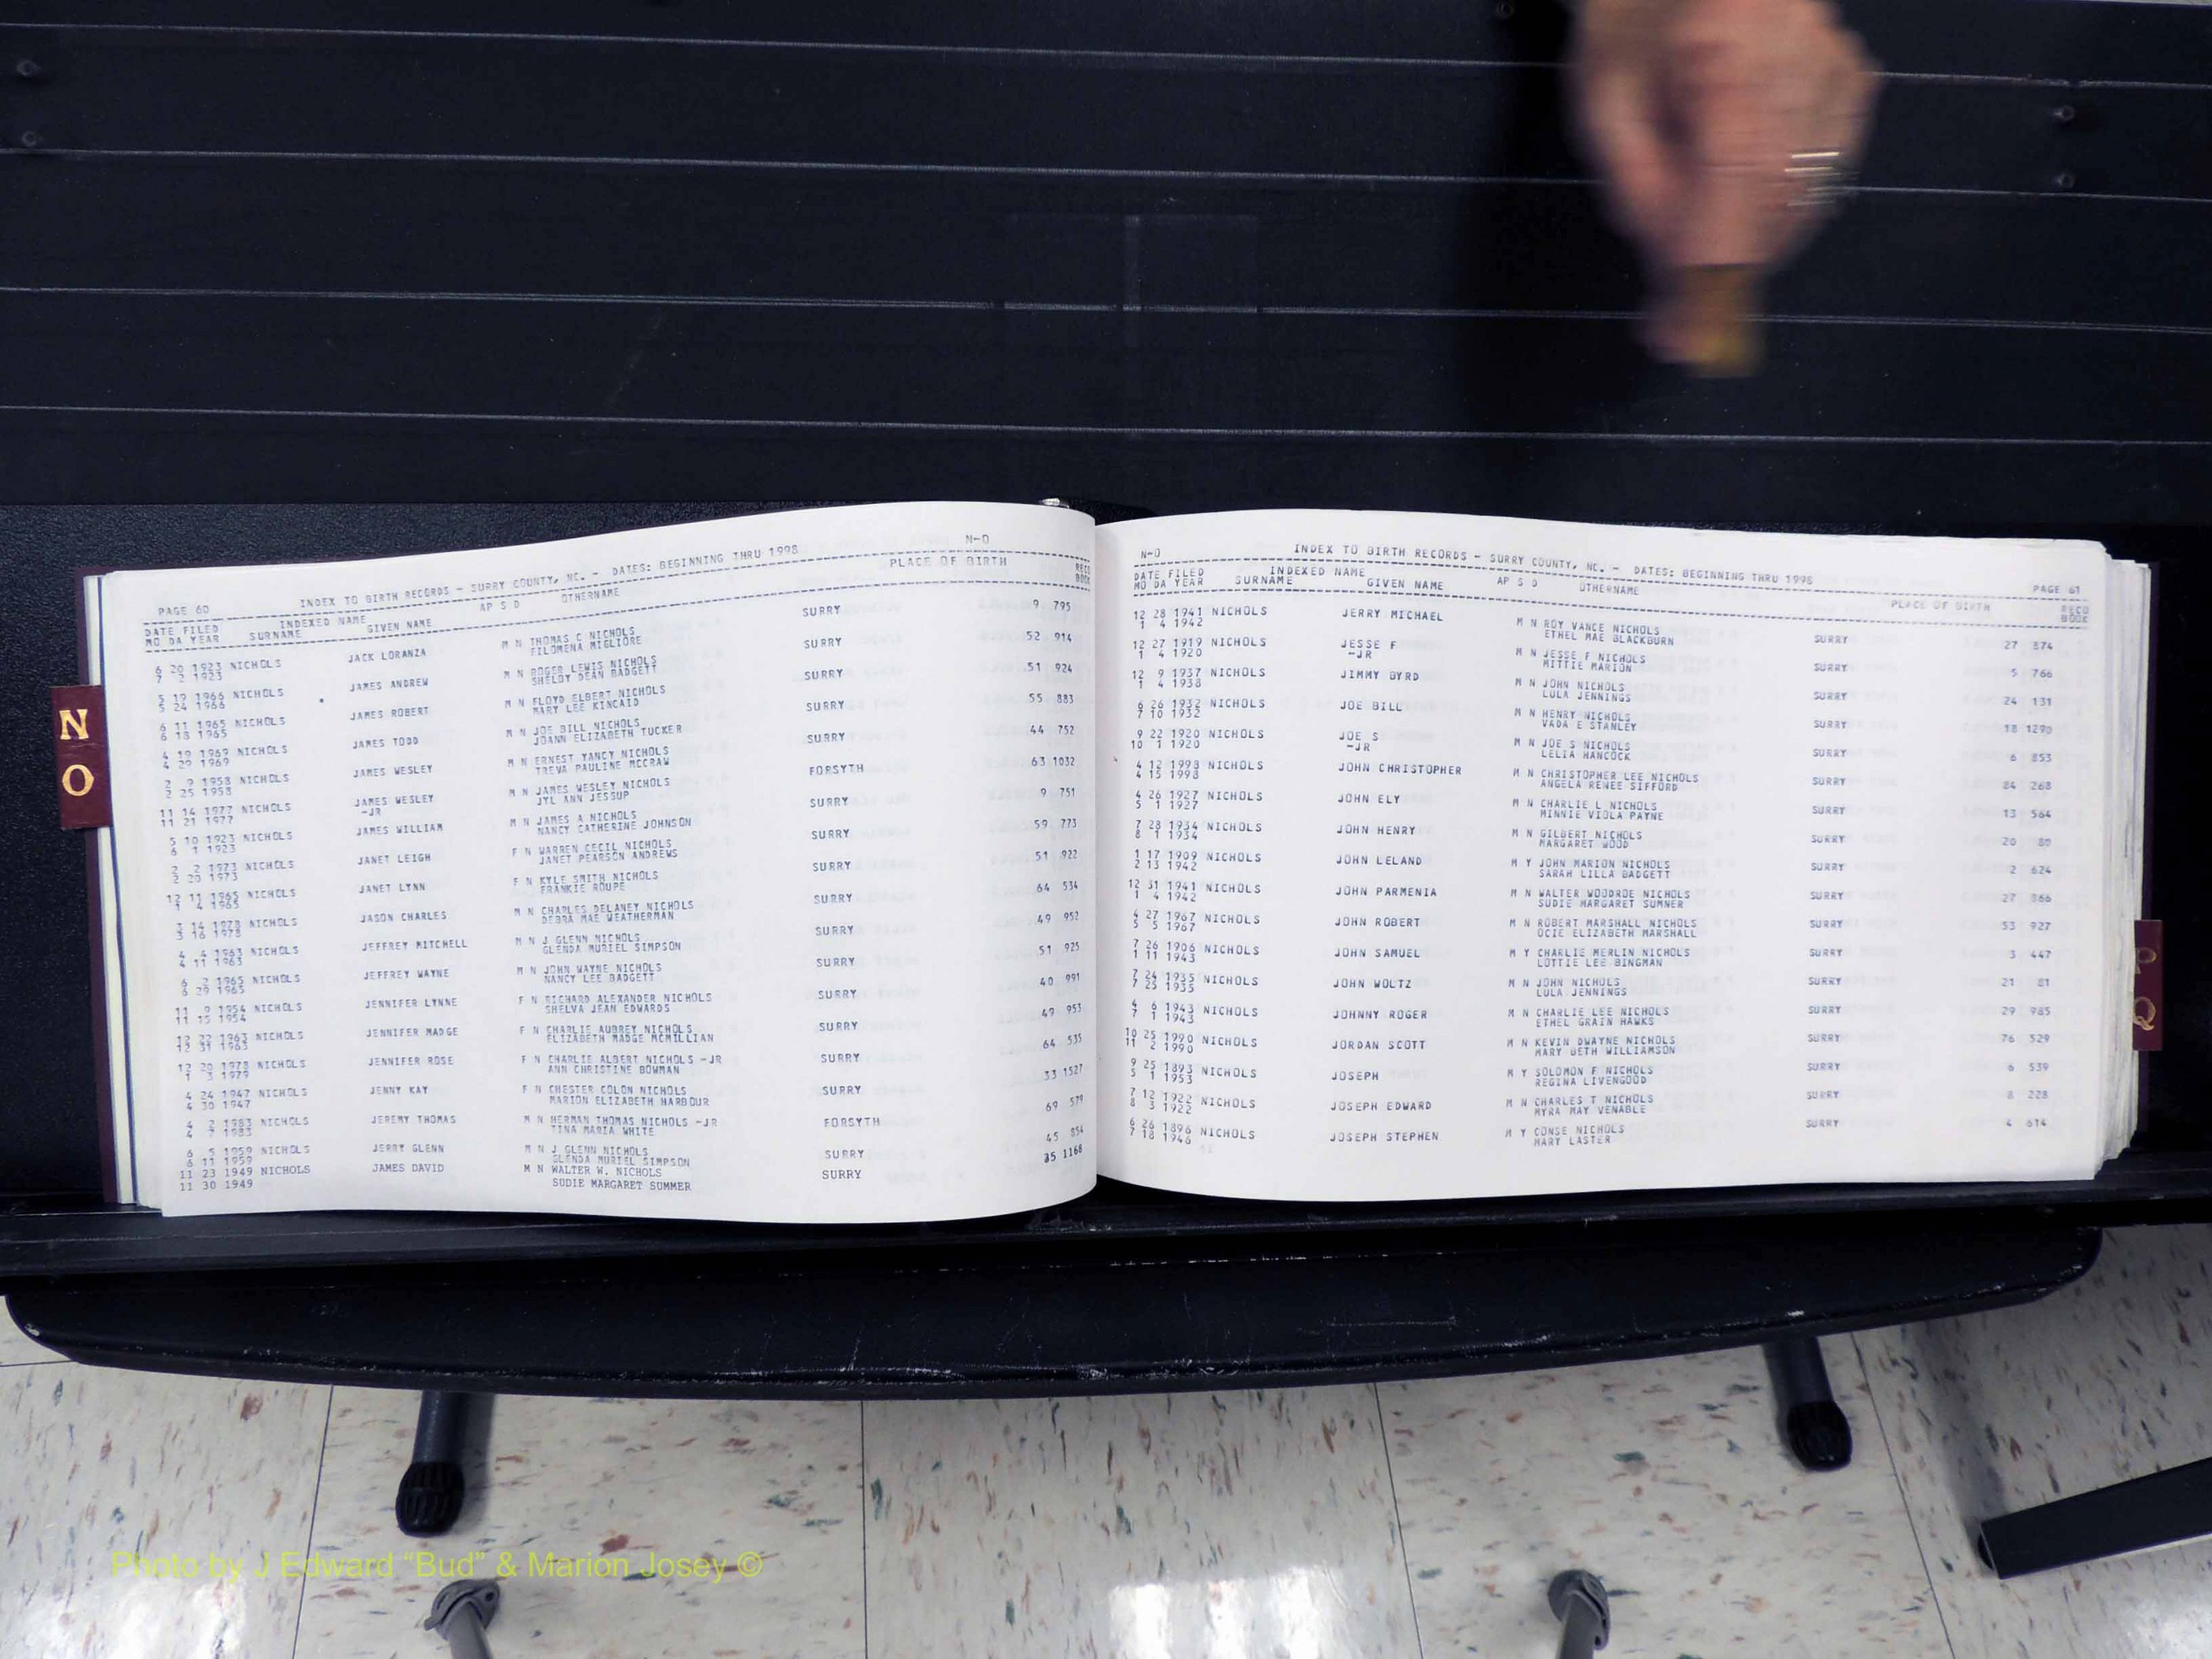 N
O
PAGE 60 INDEX TO BIRTH RECORDS - SURRY COUNTY, NC. - DATES: BEGINNING THRU 1998 N-O
DATE FILED INDEXED NAME AP S D OTHERNAME PLACE OF BIRTH RECO
MO DA YEAR SURNAME GIVEN NAME BOOK
6 20 1923 NICHOLS JACK LORANZA M N THOMAS C NICHOLS SURRY 9 795
7 2 1923 FILOMENA MIGLIORE
5 19 1966 NICHOLS JAMES ANDREW M N ROGER LEWIS NICHOLS SURRY 52 914
5 24 1966 SHELBY DEAN BADGETT
6 11 1965 NICHOLS JAMES ROBERT M N FLOYD ELBERT NICHOLS SURRY 51 924
6 18 1965 MARY LEE KINCAID
4 19 1969 NICHOLS JAMES TODD M N JOE BILL NICHOLS SURRY 55 883
4 29 1969 JOANN ELIZABETH TUCKER
2 9 1958 NICHOLS JAMES WESLEY M N ERNEST YANCY NICHOLS SURRY 44 752
2 25 1958 TREVA PAULINE MCCRAW
11 14 1977 NICHOLS JAMES WESLEY M N JAMES WESLEY NICHOLS FORSYTH 63 1032
11 21 1977 -JR JYL ANN JESSUP
5 10 1923 NICHOLS JAMES WILLIAM M N JAMES A NICHOLS SURRY 9 751
6 1 1923 NANCY CATHERINE JOHNSON
2 2 1973 NICHOLS JANET LEIGH F N WARREN CECIL NICHOLS SURRY 59 773
2 20 1973 JANET PEARSON ANDREWS
12 11 1965 NICHOLS JANET LYNN F N KYLE SMITH NICHOLS SURRY 51 922
1 4 1965 FRANKIE ROUPE
3 14 1978 NICHOLS JASON CHARLES M N CHARLES DELANEY NICHOLS SURRY 64 534
3 16 1978 DEBRA MAE WEATHERMAN
4 4 1963 NICHOLS JEFFREY MITCHELL M N J GLENN NICHOLS SURRY 49 952
4 11 1963 GLENDA MURIEL SIMPSON
6 2 1965 NICHOLS JEFFREY WAYNE M N JOHN WAYNE NICHOLS SURRY 51 925
6 29 1965 NANCY LEE BADGETT
11 9 1954 NICHOLS JENNIFER LYNNE F N RICHARD ALEXANDER NICHOLS SURRY 40 991
11 15 1954 SHELVA JEAN EDWARDS
12 22 1963 NICHOLS JENNIFER MADGE F N CHARLIE AUBREY NICHOLS SURRY 49 953
12 31 1963 ELIZABETH MADGE MCMILLIAN
12 20 1978 NICHOLS JENNIFER ROSE F N CHARLIE ALBERT NICHOLS -JR SURRY 64 535
1 3 1979 ANN CHRISTINE BOWMAN
4 24 1947 NICHOLS JENNY KAY F N CHESTER COLON NICHOLS SURRY 33 1527
4 30 1947 MARION ELIZABETH HARBOUR
4 2 1983 NICHOLS JEREMY THOMAS M N HERMAN THOMAS NICHOLS -JR FORSYTH 69 579
4 7 1983 TINA MARIA WHITE
6 5 1959 NICHOLS JERRY GLENN M N J GLENN NICHOLS SURRY 45 854
6 11 1959 GLENDA MURIEL SIMPSON
11 23 1949 NICHOLS JAMES DAVID M N WALTER W. NICHOLS SURRY 35 1168
11 30 1949 SUDIE MARGARET SUMMER
N-O INDEX TO BIRTH RECORDS - SURRY COUNTY, NC. - DATES: BEGINNING THRU 1998 PAGE 61
DATE FILED INDEXED NAME AP S D OTHERNAME PLACE OF BIRTH RECO
MO DA YEAR SURNAME GIVEN NAME BOOK
12 28 1941 NICHOLS JERRY MICHAEL M N ROY VANCE NICHOLS SURRY 27 874
1 4 1942 ETHEL MAE BLACKBURN
12 27 1919 NICHOLS JESSE F M N JESSE F NICHOLS SURRY 5 766
1 4 1920 -JR MITTIE MARION
12 9 1937 NICHOLS JIMMY BYRD M N JOHN NICHOLS SURRY 24 131
1 4 1938 LULA JENNINGS
6 26 1932 NICHOLS JOE BILL M N HENRY NICHOLS SURRY 18 1290
7 10 1932 VADA E STANLEY
9 22 1920 NICHOLS JOE S M N JOE S NICHOLS SURRY 6 853
10 1 1920 -JR LELIA HANCOCK
4 12 1998 NICHOLS JOHN CHRISTOPHER M N CHRISTOPHER LEE NICHOLS SURRY 84 268
4 15 1998 ANGELA RENEE SIFFORD
4 26 1927 NICHOLS JOHN ELY M N CHARLIE L NICHOLS SURRY 13 564
5 1 1927 MINNIE VIOLA PAYNE
7 28 1934 NICHOLS JOHN HENRY M N GILBERT NICHOLS SURRY 20 80
8 1 1934 MARGARET WOOD
1 17 1909 NICHOLS JOHN LELAND M Y JOHN MARION NICHOLS SURRY 2 624
2 13 1942 SARAH LILLA BADGETT
12 31 1941 NICHOLS JOHN PARMENIA M N WALTER WOODROE NICHOLS SURRY 27 866
1 4 1942 SUDIE MARGARET SUMNER
4 27 1967 NICHOLS JOHN ROBERT M N ROBERT MARSHALL NICHOLS SURRY 53 927
5 5 1967 OCIE ELIZABETH MARSHALL
7 26 1906 NICHOLS JOHN SAMUEL M Y CHARLIE MERLIN NICHOLS SURRY 3 447
1 11 1943 LOTTIE LEE BINGMAN
7 24 1935 NICHOLS JOHN WOLTZ M N JOHN NICHOLS SURRY 21 81
7 25 1935 LULA JENNINGS
4 6 1943 NICHOLS JOHNNY ROGER M N CHARLIE LEE NICHOLS SURRY 29 985
7 1 1943 ETHEL GRAIN HAWKS
10 25 1990 NICHOLS JORDAN SCOTT M N KEVIN DWAYNE NICHOLS SURRY 76 529
11 2 1990 MARY BETH WILLIAMSON
9 25 1893 NICHOLS JOSEPH M Y SOLOMON F NICHOLS SURRY 6 539
5 1 1953 REGINA LIVENGOOD
7 12 1922 NICHOLS JOSEPH EDWARD M N CHARLES T NICHOLS SURRY 8 228
8 3 1922 MYRA MAY VENABLE
6 26 1896 NICHOLS JOSEPH STEPHEN M Y CONSE NICHOLS SURRY 4 614
7 18 1946 MARY LASTER
P
Q
Photo by J Edward “Bud” & Marion Josey ©